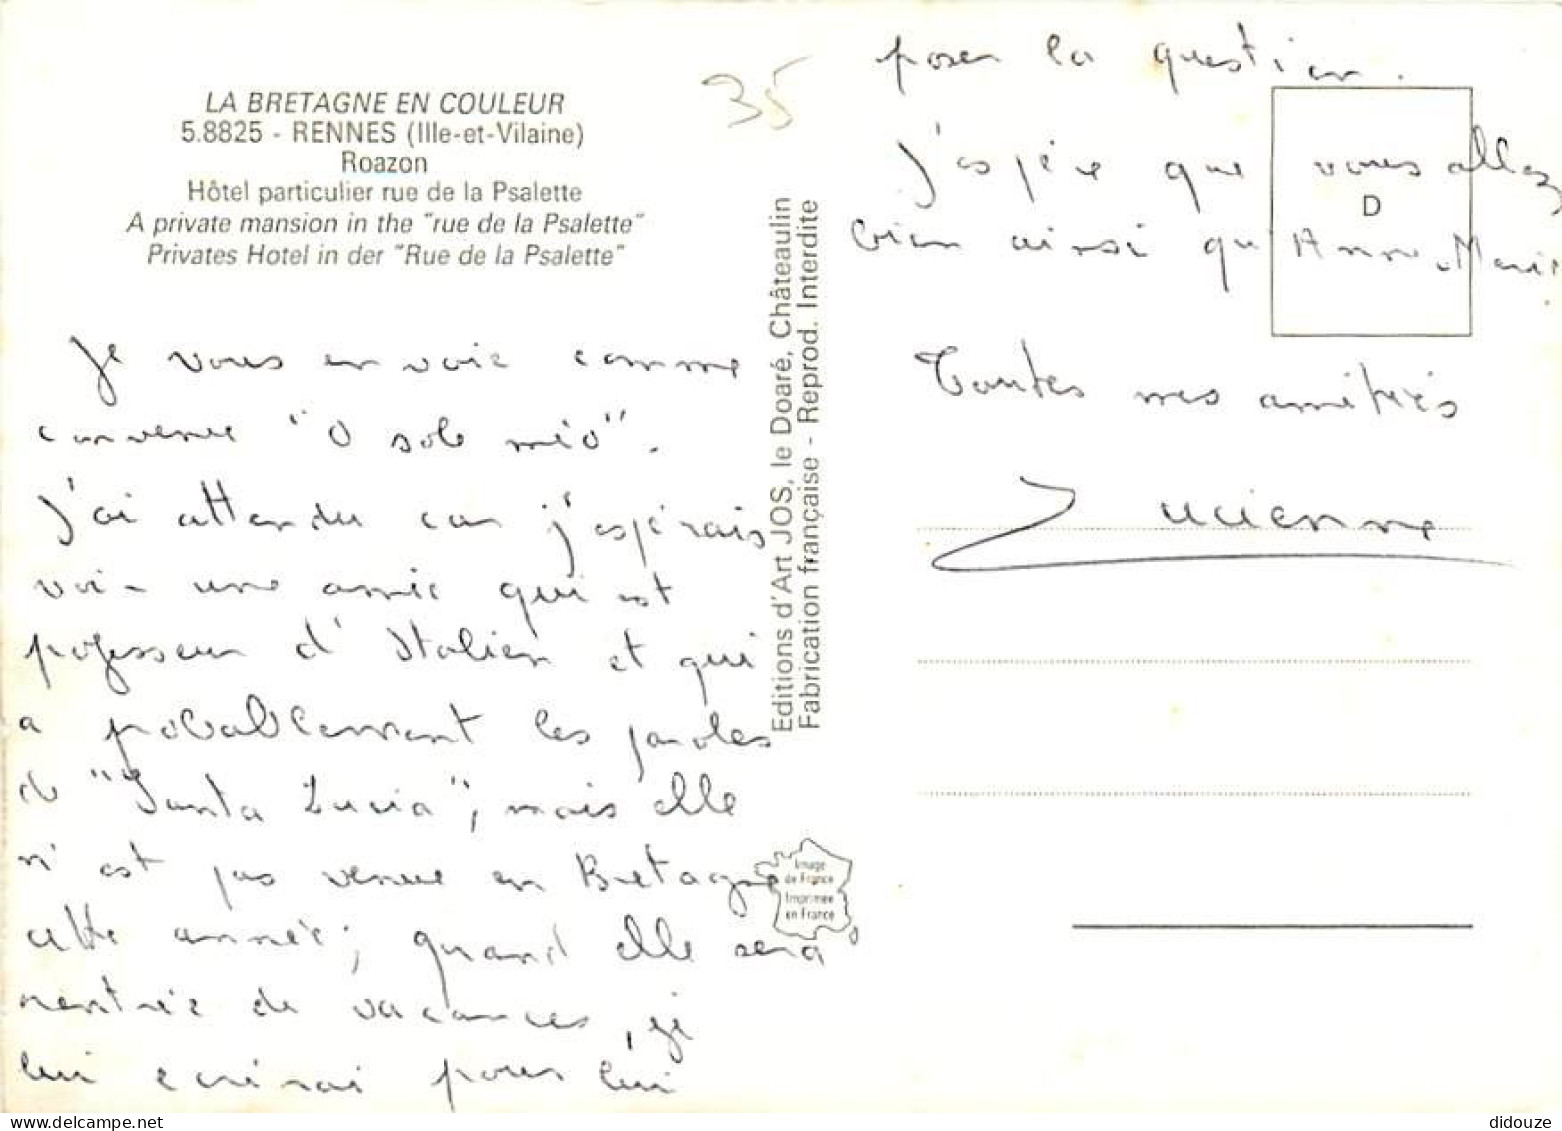 LA BRETAGNE EN COULEUR
5.8825 - RENNES (Ille-et-Vilaine)
Roazon
Hôtel particulier rue de la Psalette
A private mansion in the "rue de la Psalette"
Privates Hotel in der "Rue de la Psalette"
35
Je vous envoie comme
convenu "O sole mio".
J'ai attendu car j'espérais
voir une amie qui est
professeur d'Italien et qui
a probablement les paroles
de "Santa Lucia", mais elle
n'est pas venue en Bretagne
cette année ; quand elle sera
rentrée de vacances, je
lui écrirai pour lui
Editions d'Art JOS, le Doaré, Châteaulin
Fabrication française - Reprod. Interdite
Image
de France
Imprimée
en France
poser la question.
J'espère que vous allez
bien ainsi qu'Anne-Marie
D
Toutes mes amitiés
Lucienne
didouze